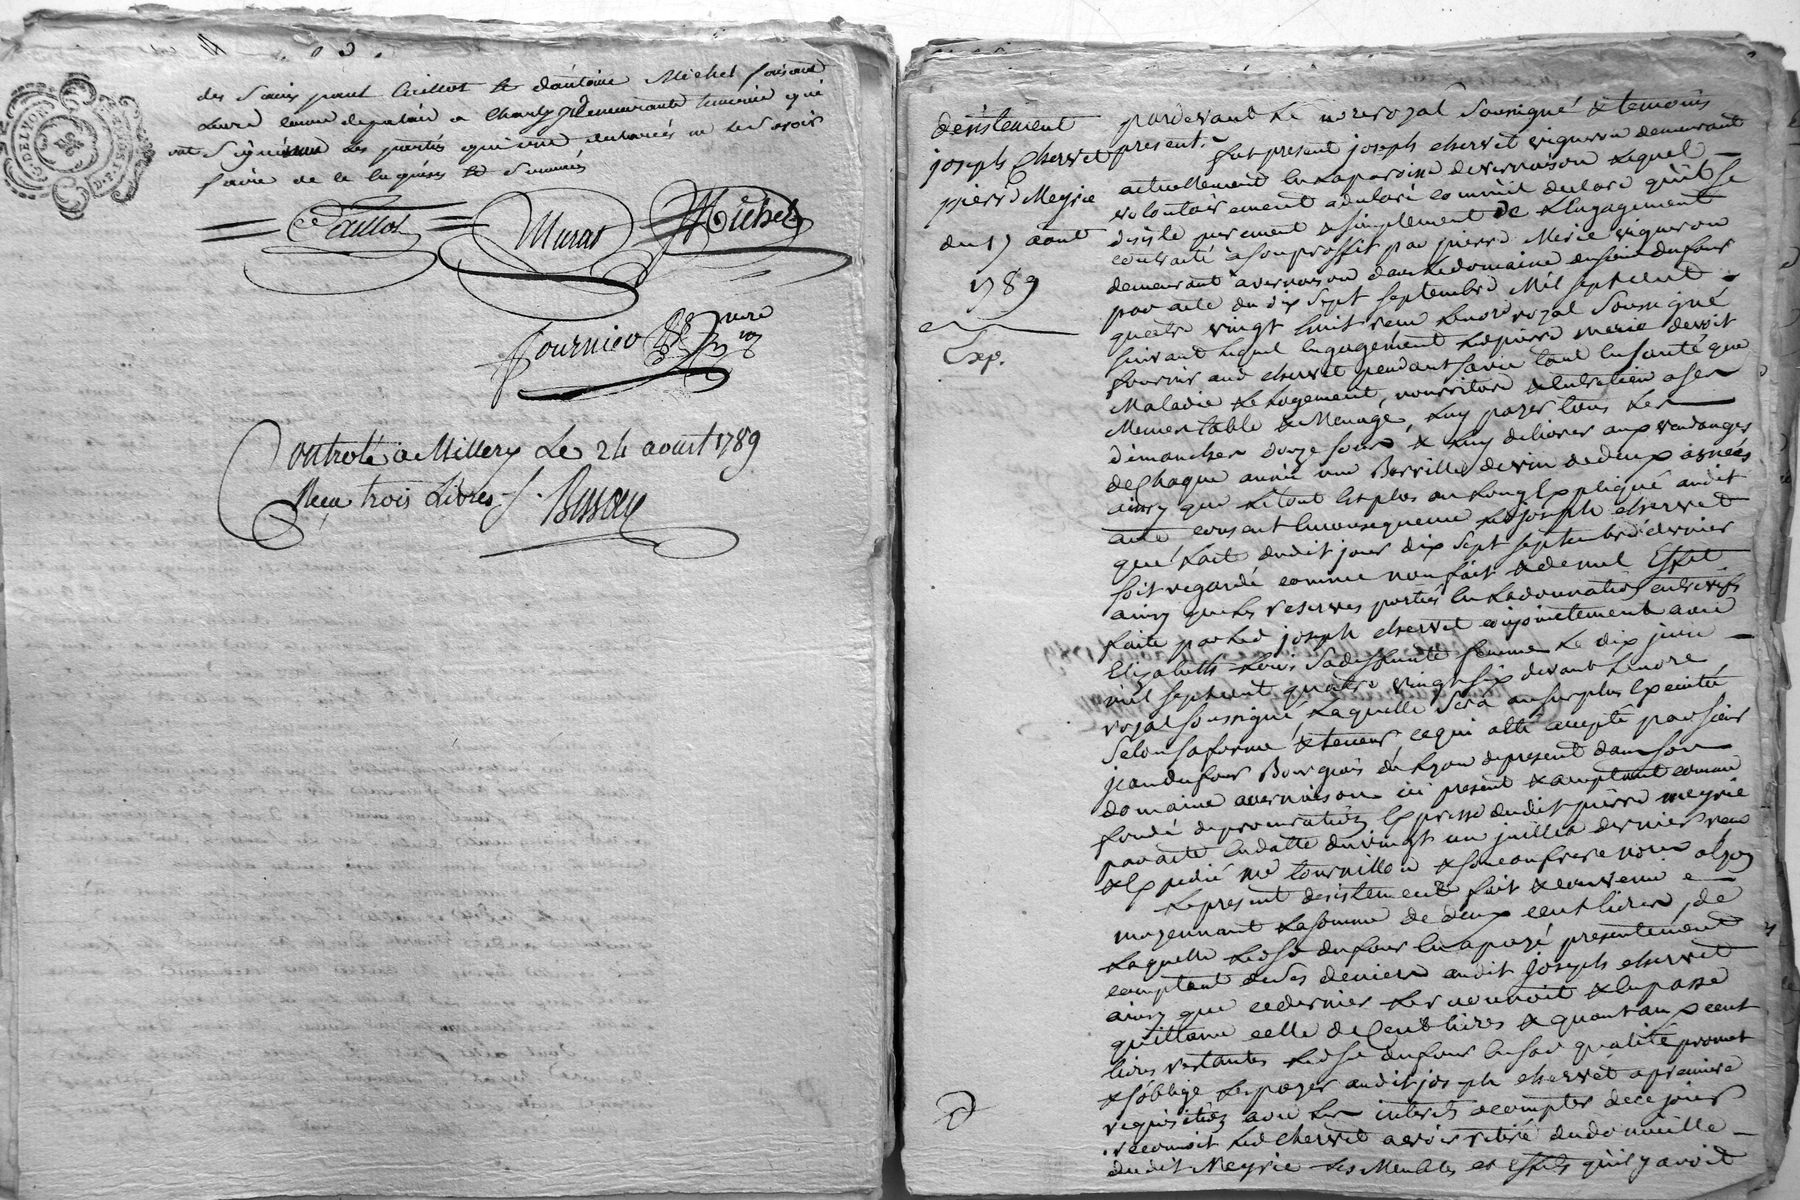 G. DE LYON
des Sieurs paul Caillot & d'antoine Michel faisant
leurs demeurante
ont Signé les parties qui ont declaré ne le Savoir
faire de ce enquises & Sommés
Caillot Murat Michel
fournier
Controlé a Millery Le 24 aoust 1789
Reçu trois Livres
desistement
joseph Chervet
pierre Meyrie
du 17 aout
1789
Exp.
pardevant Le nore royal Soussigné & temoins
present.
fut present joseph chervet vigneron demeurant
actuellement en la paroisse de vernaison Lequel
volontairement a declaré comme il declare qu'il se
desiste purement & simplement de L'Engagement
contracté a son proffit par pierre Merie vigneron
demeurant a vernaison dans Le domaine du sieur dufour
par acte du dix Sept Septembre Mil Sept cent
quatre vingt huit reçu Le nore royal Soussigné
suivant Lequel Engagement Led pierre Merie devoit
fournir aud chervet pendant sa vie tant En santé que
Maladie Le Logement, nourriture & Entretien a Sa
Meme table & Menage, Luy payer tous Les
dimanches douze sous & Luy delivrer aux vendanges
de Chaque année une Barrille de vin de deux asnées
ainsy que Le tout Est plus au Long Expliqué audit
acte consent En consequence Led joseph chervet
que L'acte dudit jour dix Sept Septembre dernier
soit regardé comme non fait & de nul Effet
ainsy que Les reserves portées En La donnation entrevifs
faite par Led joseph chervet conjointement avec
Elizabeth Sa deffunte femme Le dix juin
mil Sept cent quatre vingt six devant Le nore
royal Soussigné, Laquelle Sera au surplus Executée
Selon sa forme & teneur, ce qui a été accepté par sieur
jean dufour Bourgeois de Lyon de present dans son
domaine a vernaison ici present & acceptant comme
fondé de procuration Expresse dudit pierre meyrie
par acte En datte du vingt un juillet dernier reçu
& Expedié Me tournillon & son confrere nores a Lyon
Le present desistement fait & convenu
moyennant La somme de deux cent livres, de
Laquelle Led sr dufour En a payé presentement
comptant de ses deniers audit joseph chervet
ainsy que ce dernier Le reconnoit & En passe
quittance celle de Cent livres & quant aux cent
livres restantes Led sr dufour En sad qualité promet
& s'oblige Les payer audit joseph chervet a premiere
requisition avec Les interets a compter de ce jour
reconnoit Led chervet avoir retiré du domicille
dudit Meyrie Les Meubles et Effets qu'il y avoit